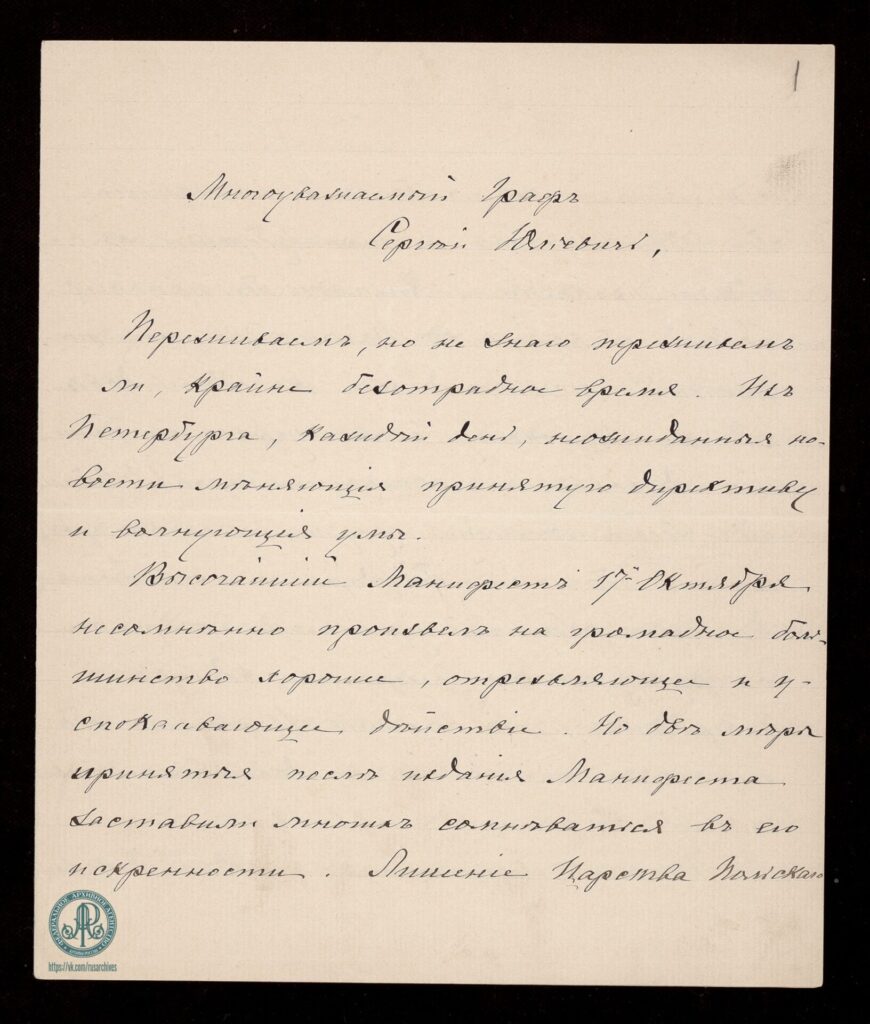 1
Многоуважаемый Графъ
Сергѣй Юліевичъ,
Переживаемъ, но не знаю переживемъ
ли, крайне безотрадное время. Изъ
Петербурга, каждый день, неожиданныя но-
вости мѣняющія принятую директиву
и волнующія умы.
Высочайшій Манифестъ 17 Октября
несомнѣнно произвелъ на громадное боль-
шинство хорошее, отрезвляющее и у-
спокаивающее дѣйствіе. Но двѣ мѣры
принятыя послѣ изданія Манифеста
заставили многихъ сомнѣваться въ его
искренности. Лишеніе Царства Польскаго
ЦЕНТРАЛЬНОЕ АРХИВНОЕ АГЕНТСТВО
https://vk.com/rusarchives